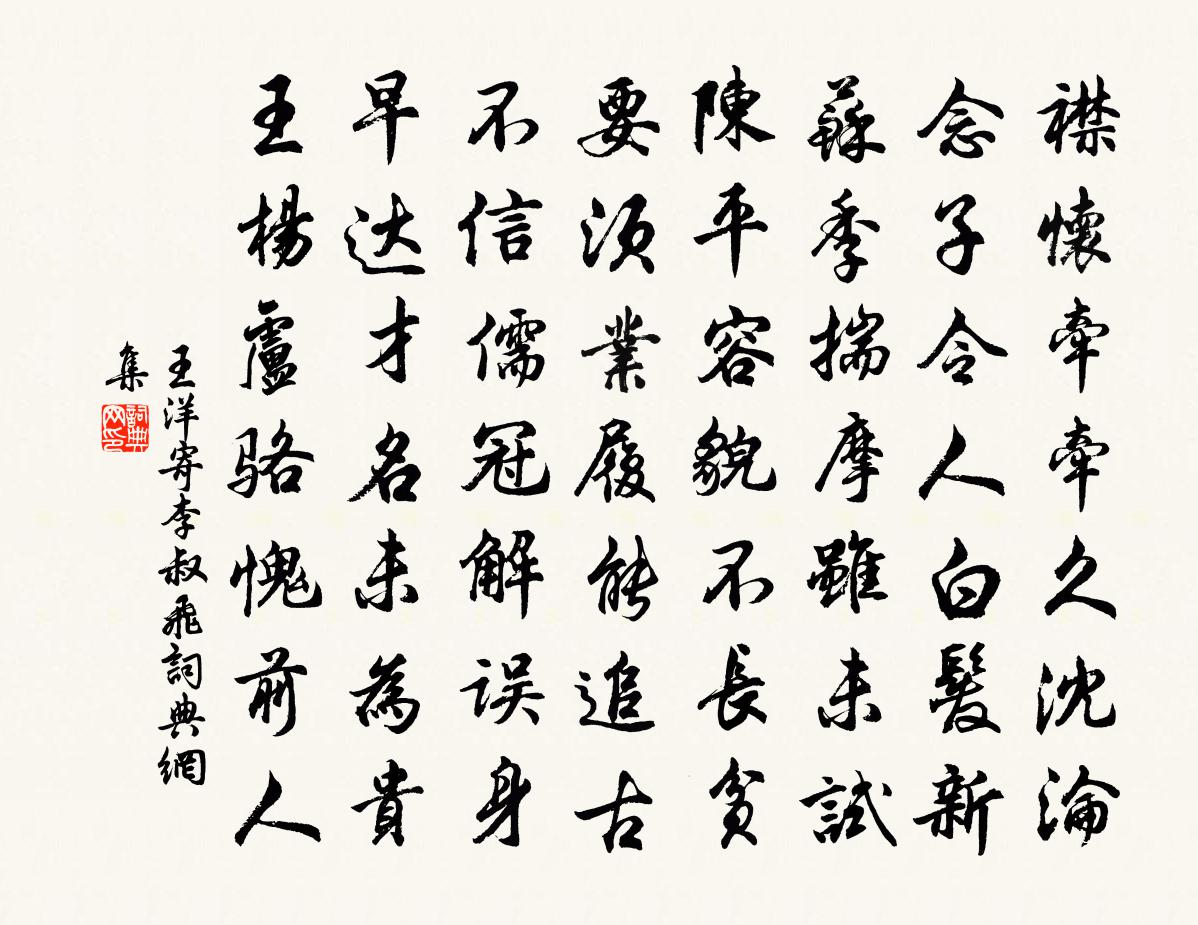 襟懷牽牽久沈淪
念子令人白髮新
蘇季揣摩雖未試
陳平容貌不長貧
要須業履能追古
不信儒冠解误身
早达才名未為貴
王楊盧骆愧前人
王洋寄李叔飛詞典網
集
詞典网印